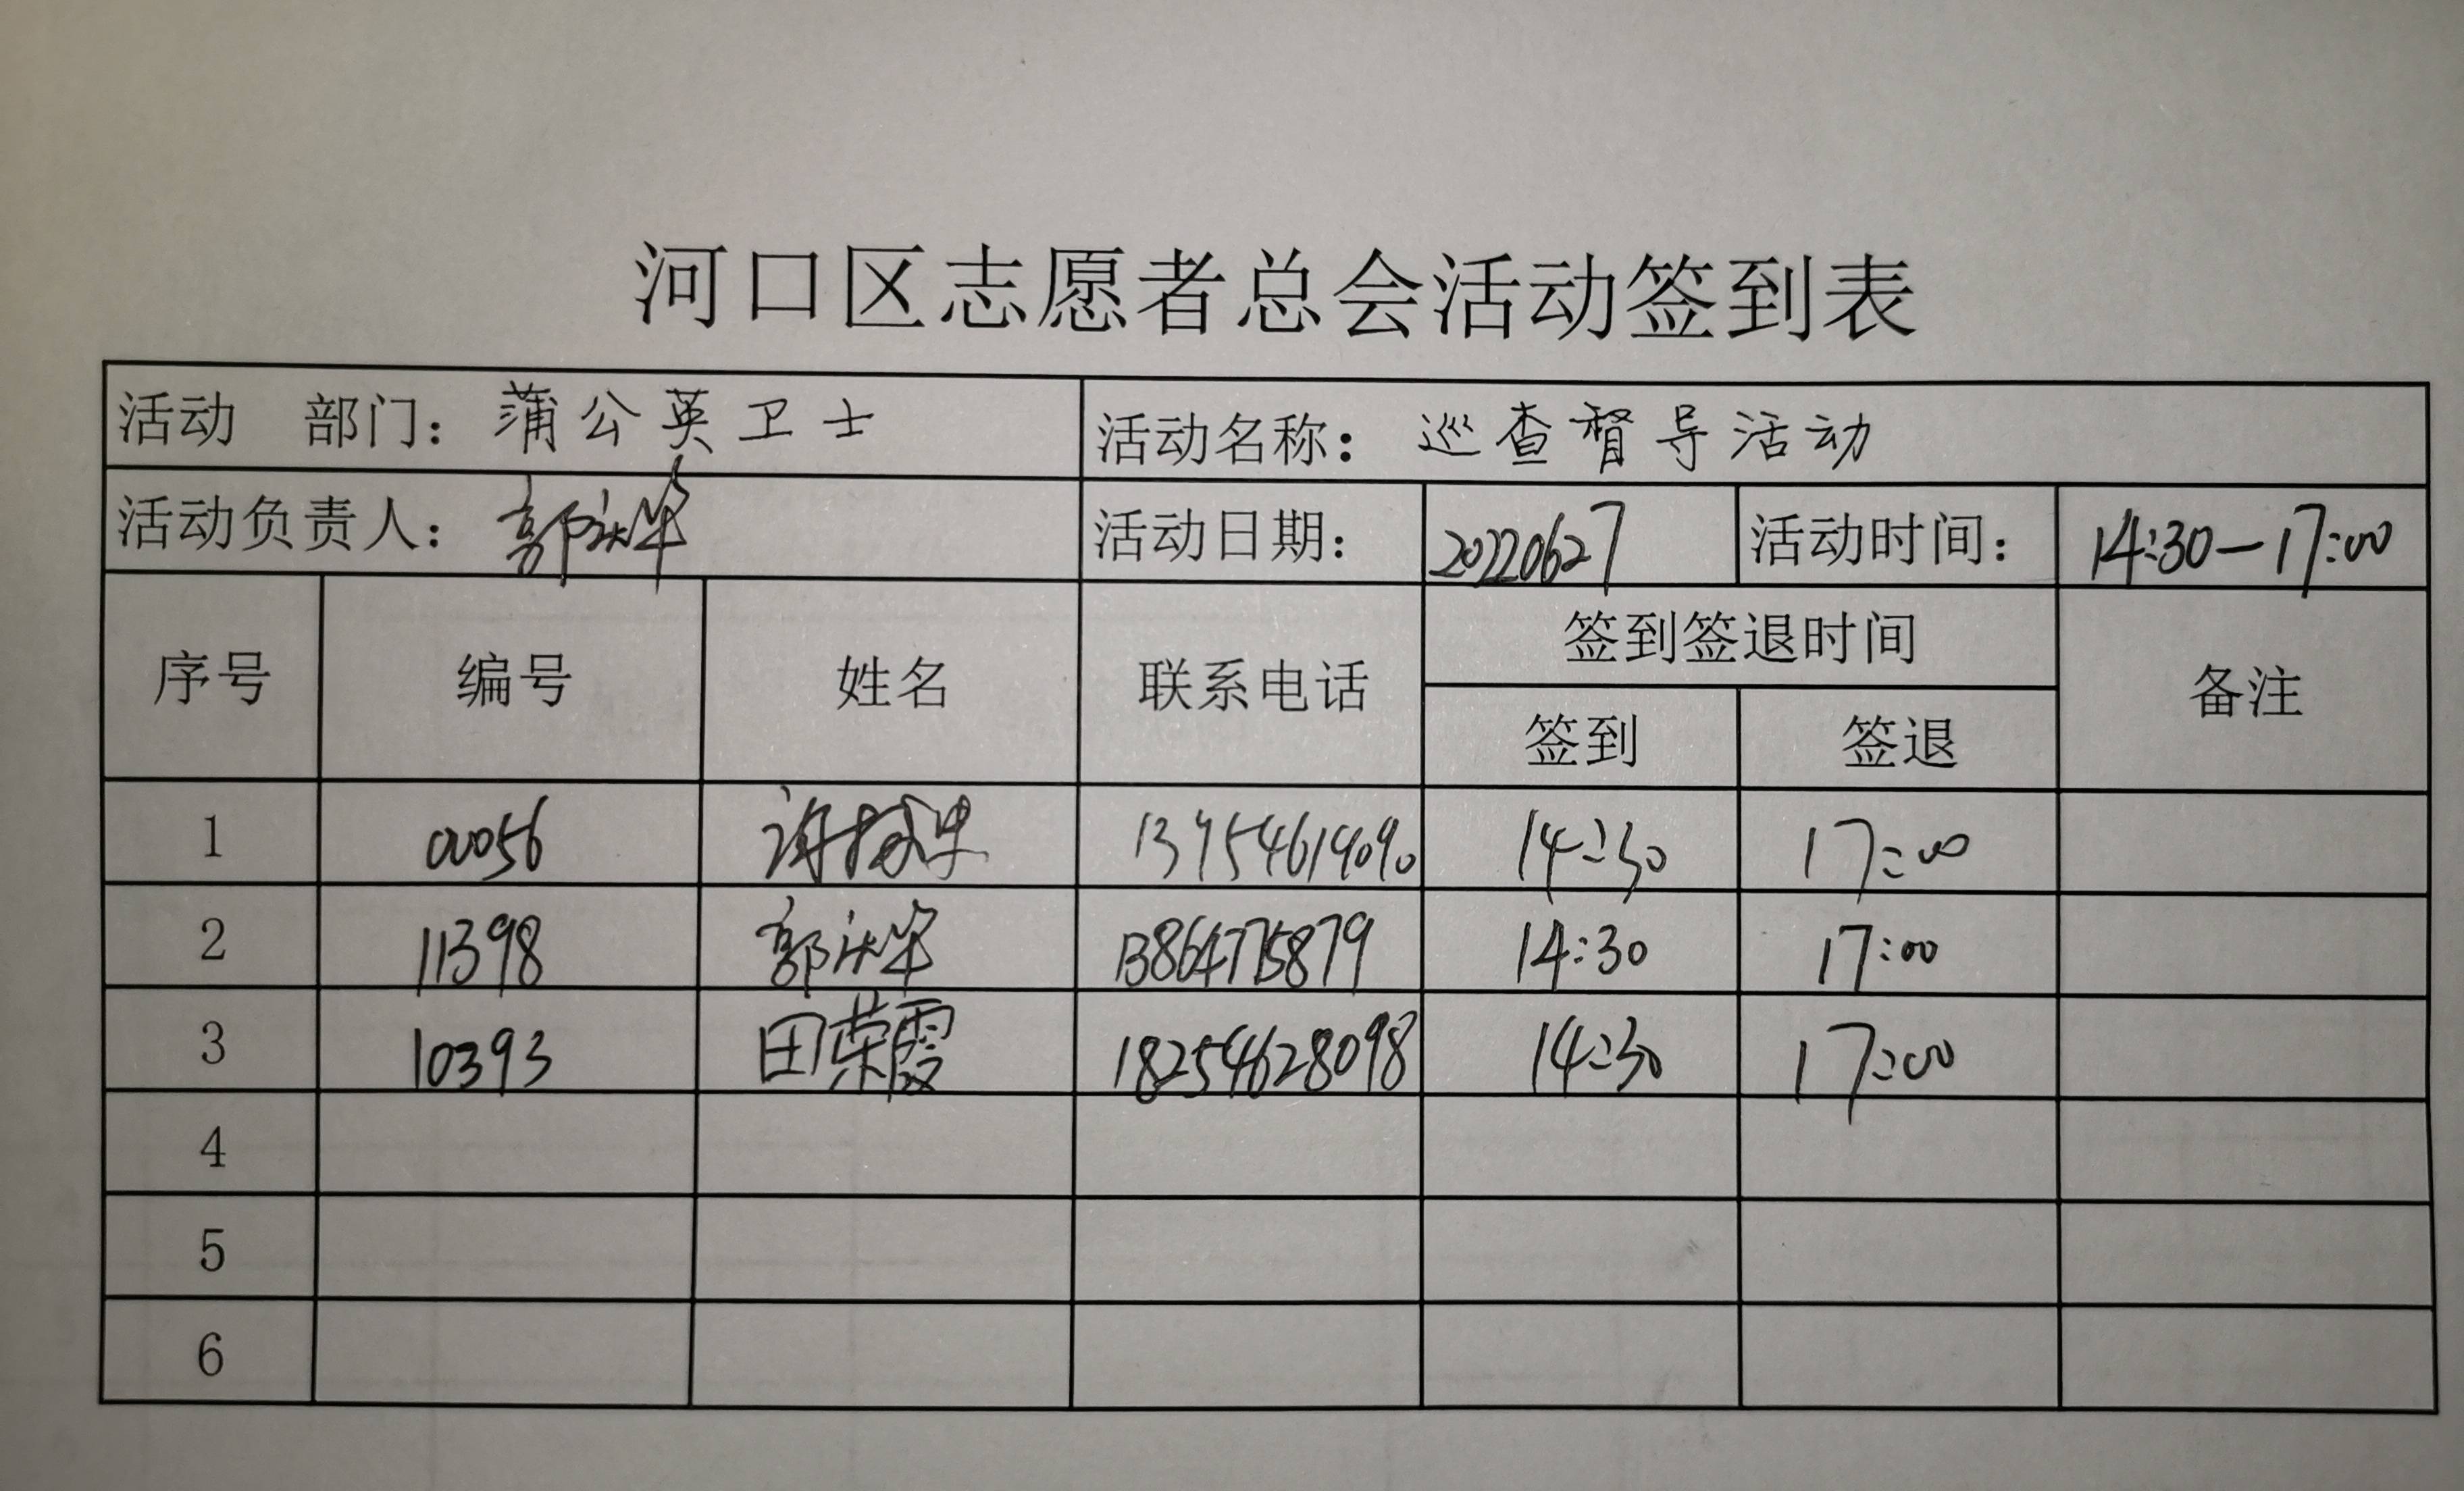 河口区志愿者总会活动签到表
活动 部门：蒲公英卫士 活动名称：巡查督导活动
活动负责人：郭庆华 活动日期：20220627 活动时间：14:30—17:00
序号 编号 姓名 联系电话 签到签退时间 备注
签到 签退
1 00056 14:30 17:00
2 11398 郭庆华 13864775879 14:30 17:00
3 10393 田荣霞 18254628098 14:30 17:00
4
5
6